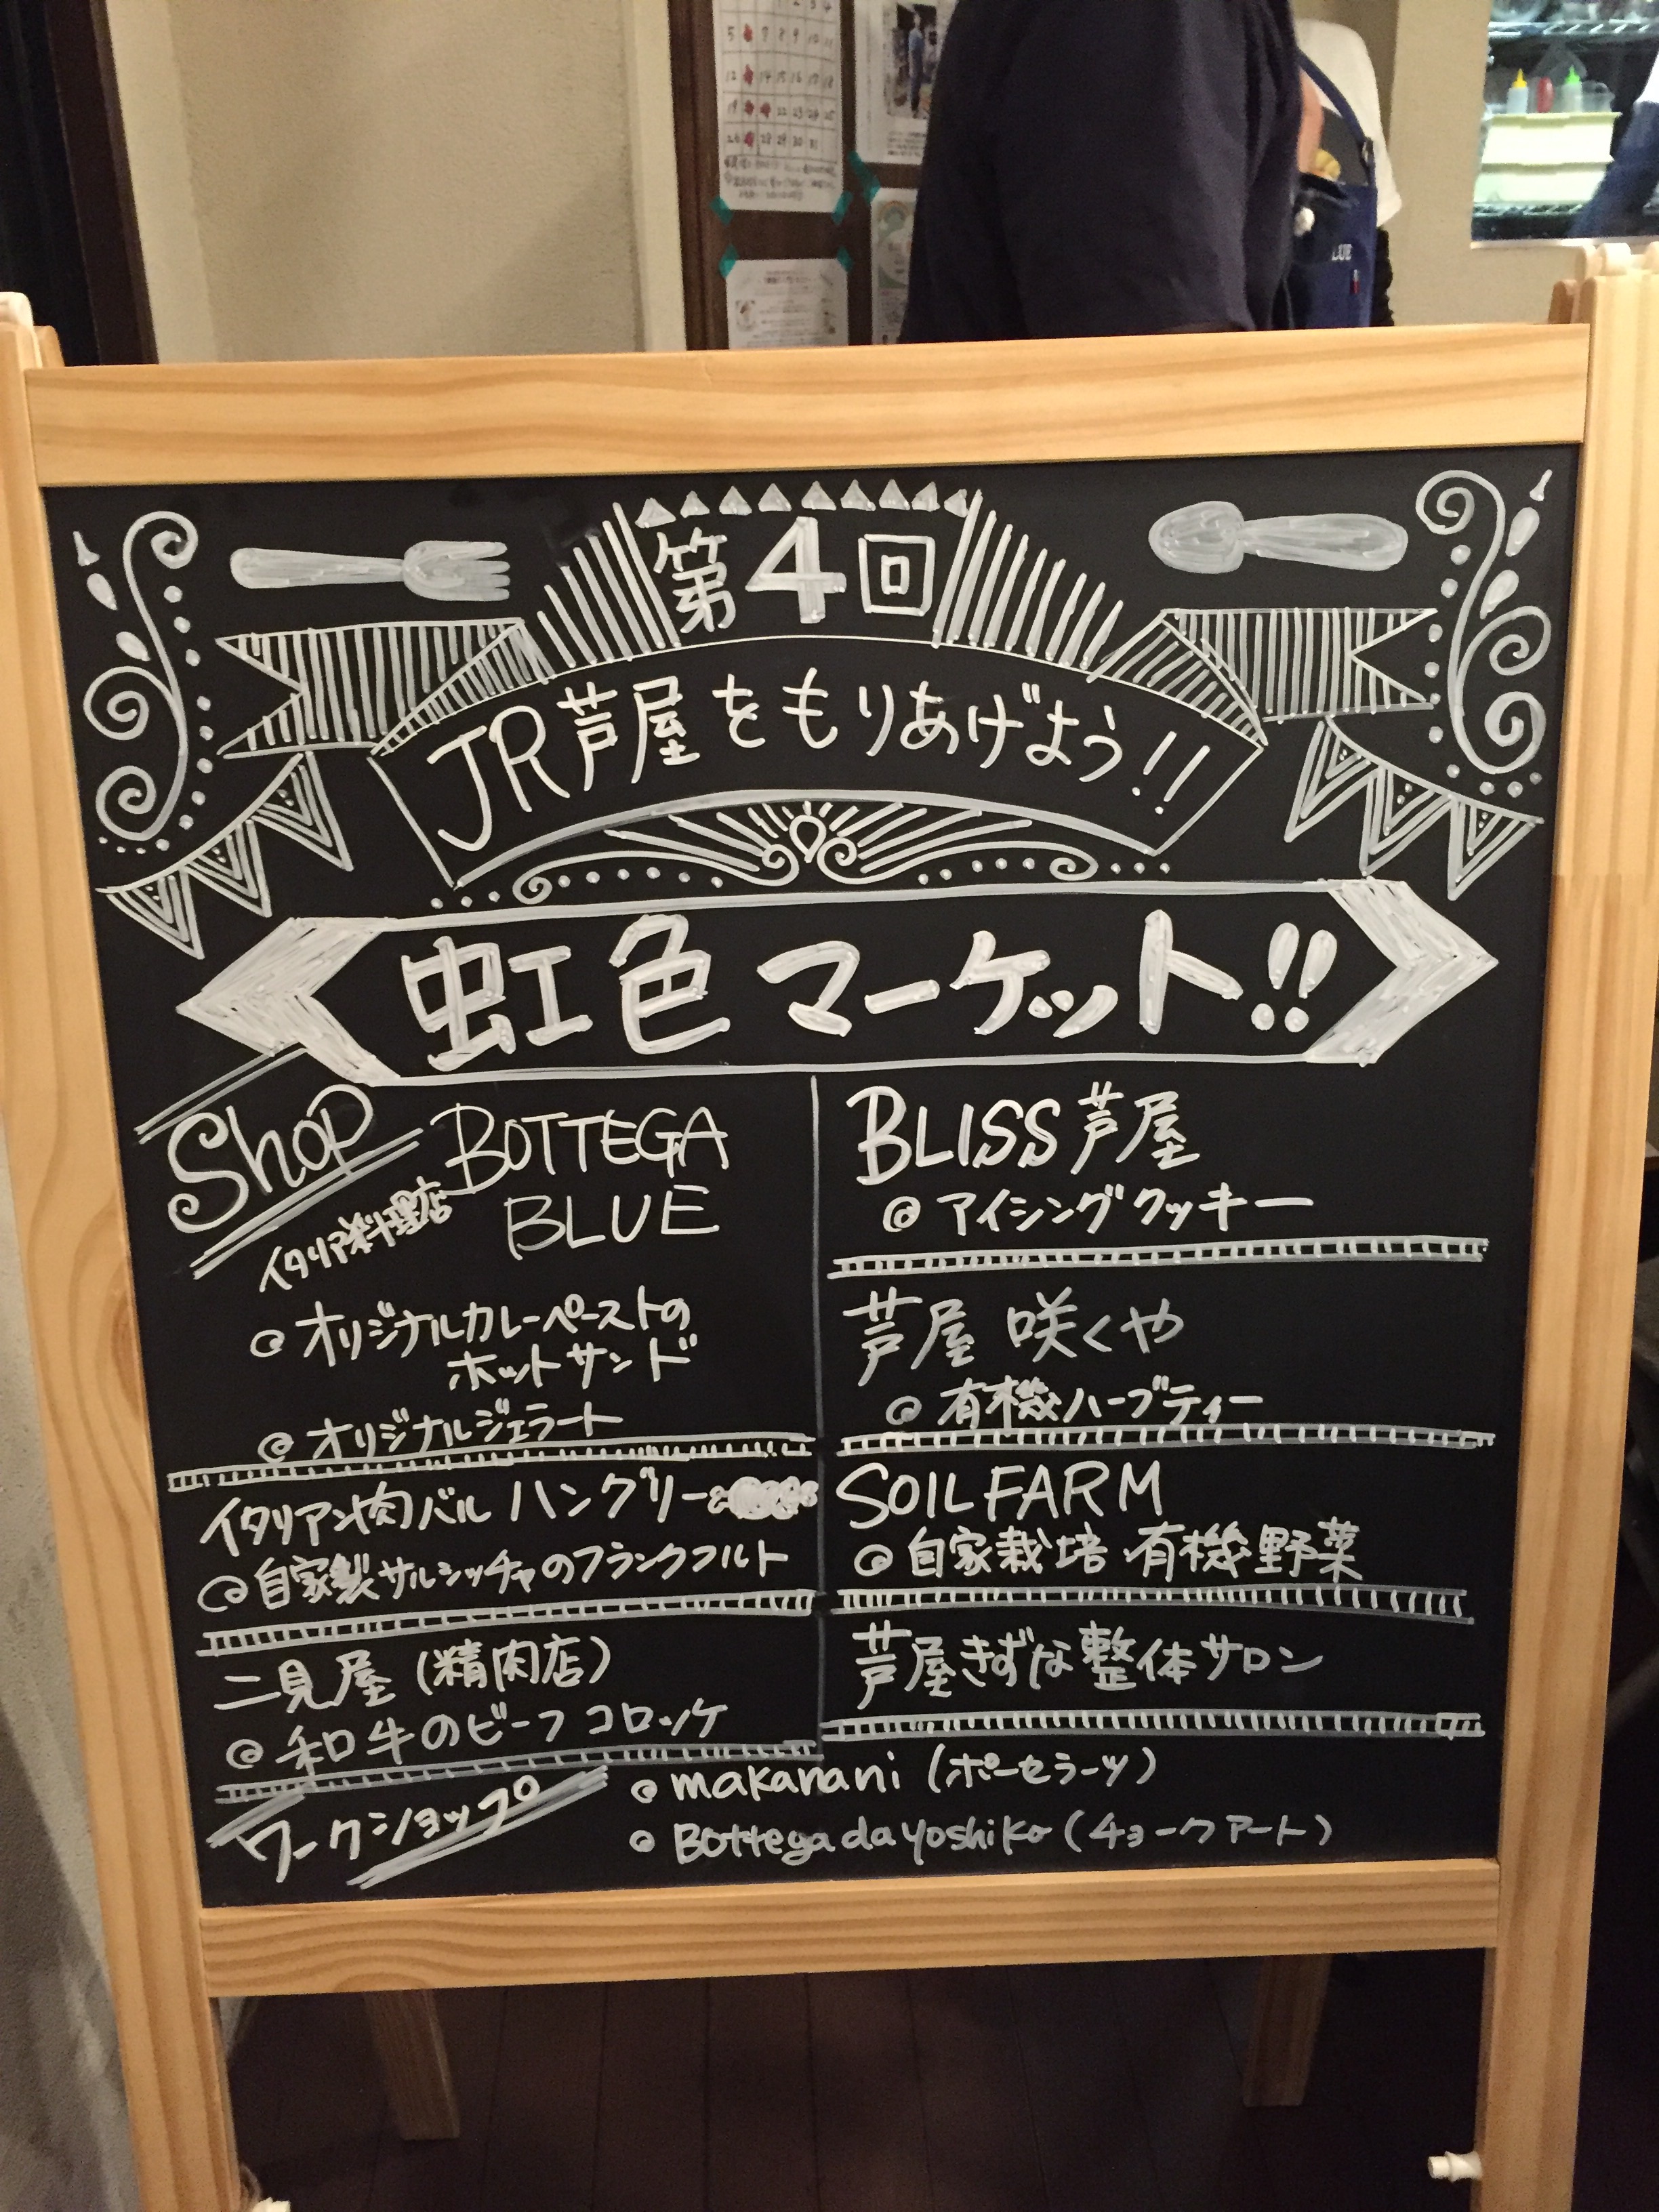 第4回
JR芦屋をもりあげよう!!
虹色マーケット!!
Shop
イタリア料理店
BOTTEGA
BLUE
@ オリジナルカレーペーストの
ホットサンド
@ オリジナルジェラート
イタリアン肉バル ハングリー
@ 自家製サルシッチャのフランクフルト
二見屋(精肉店)
@ 和牛のビーフコロッケ
BLISS芦屋
@ アイシングクッキー
芦屋 咲くや
@ 有機ハーブティー
SOILFARM
@ 自家栽培 有機野菜
芦屋きずな整体サロン
ワークショップ
@ makanani (ポーセラーツ)
@ Bottega da yoshiko (チョークアート)
LUE